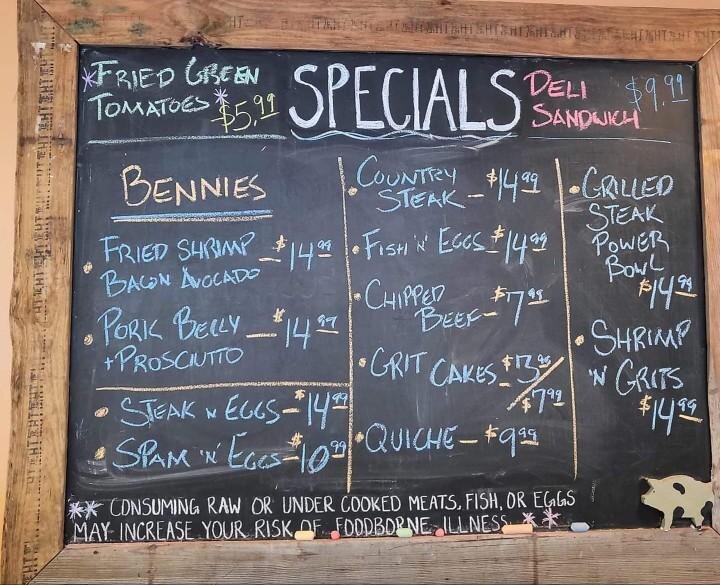 *FRIED GREEN
TOMATOES* $5.99
SPECIALS
DELI
SANDWICH
$9.99
BENNIES
• FRIED SHRIMP
BACON AVOCADO – $14.99
• PORK BELLY – $14.99
+ PROSCIUTTO
• STEAK N EGGS – $14.99
• SPAM 'N' EGGS – $10.99
• COUNTRY
STEAK – $14.99
• FISH 'N' EGGS – $14.99
• CHIPPED
BEEF – $7.99
• GRIT CAKES – $13.99/
$7.99
• QUICHE – $9.99
• GRILLED
STEAK
POWER
BOWL
$14.99
• SHRIMP
'N GRITS
$14.99
** CONSUMING RAW OR UNDER COOKED MEATS, FISH, OR EGGS
MAY INCREASE YOUR RISK OF FOODBORNE ILLNESS **